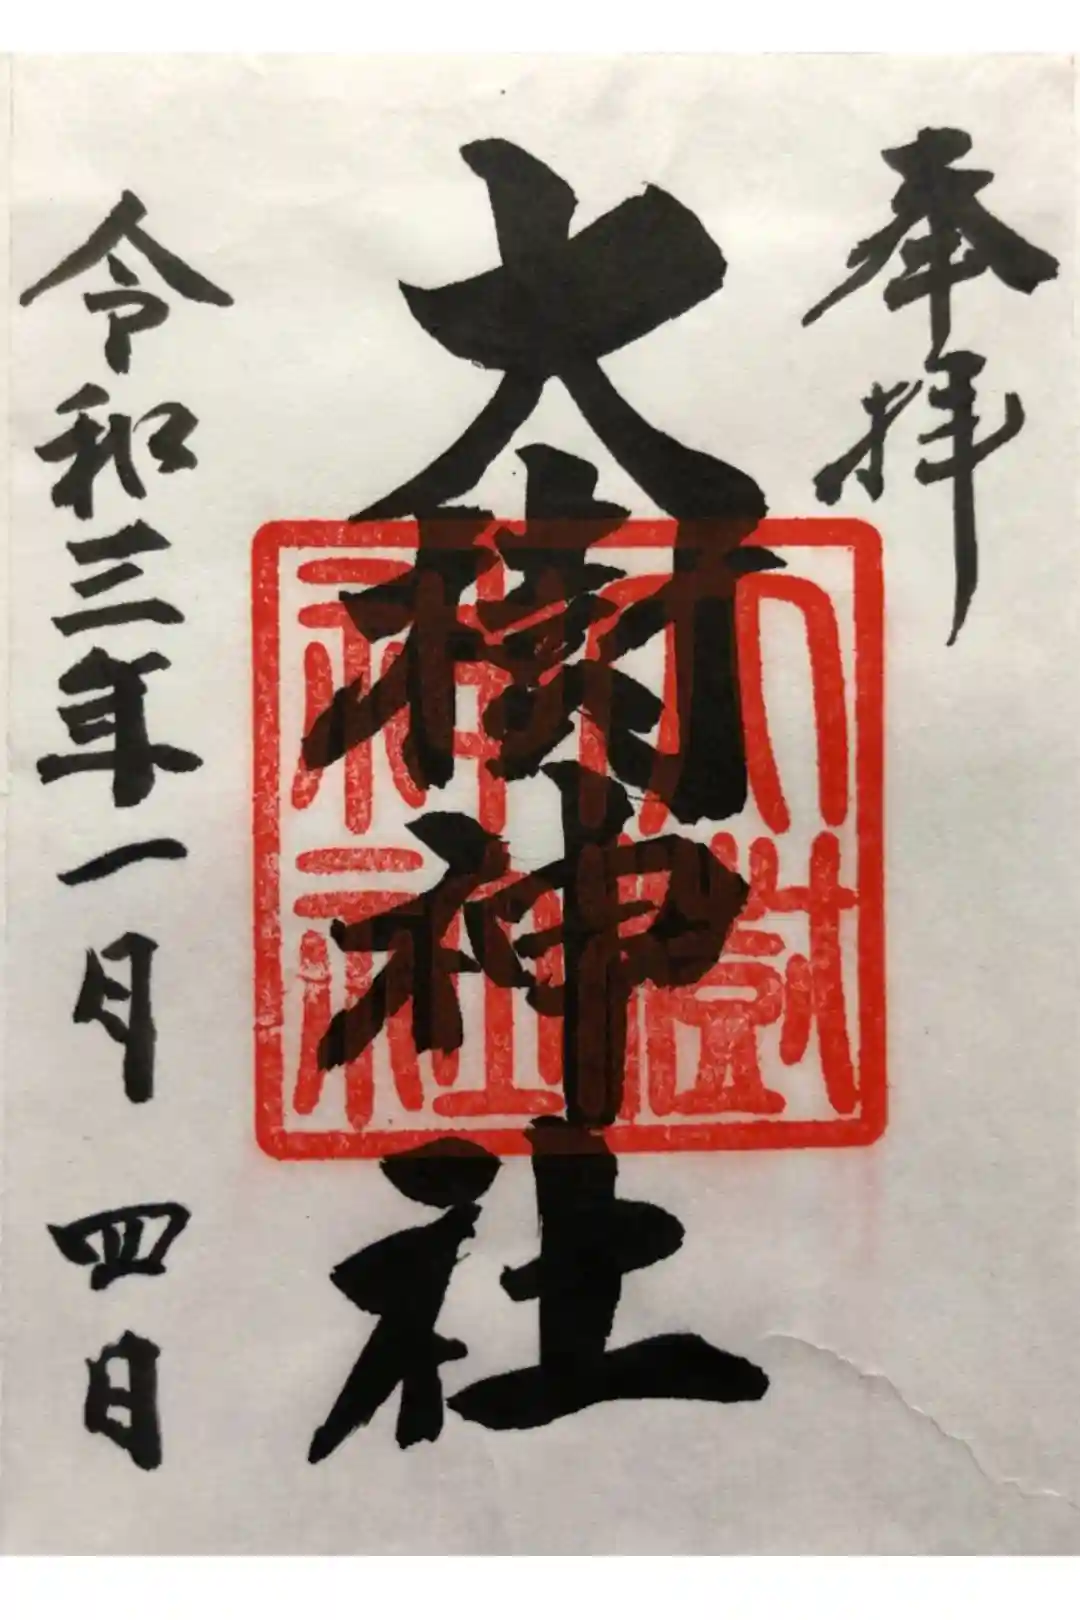 奉拝
大樹神社
大樹神社
令和三年一月 四日